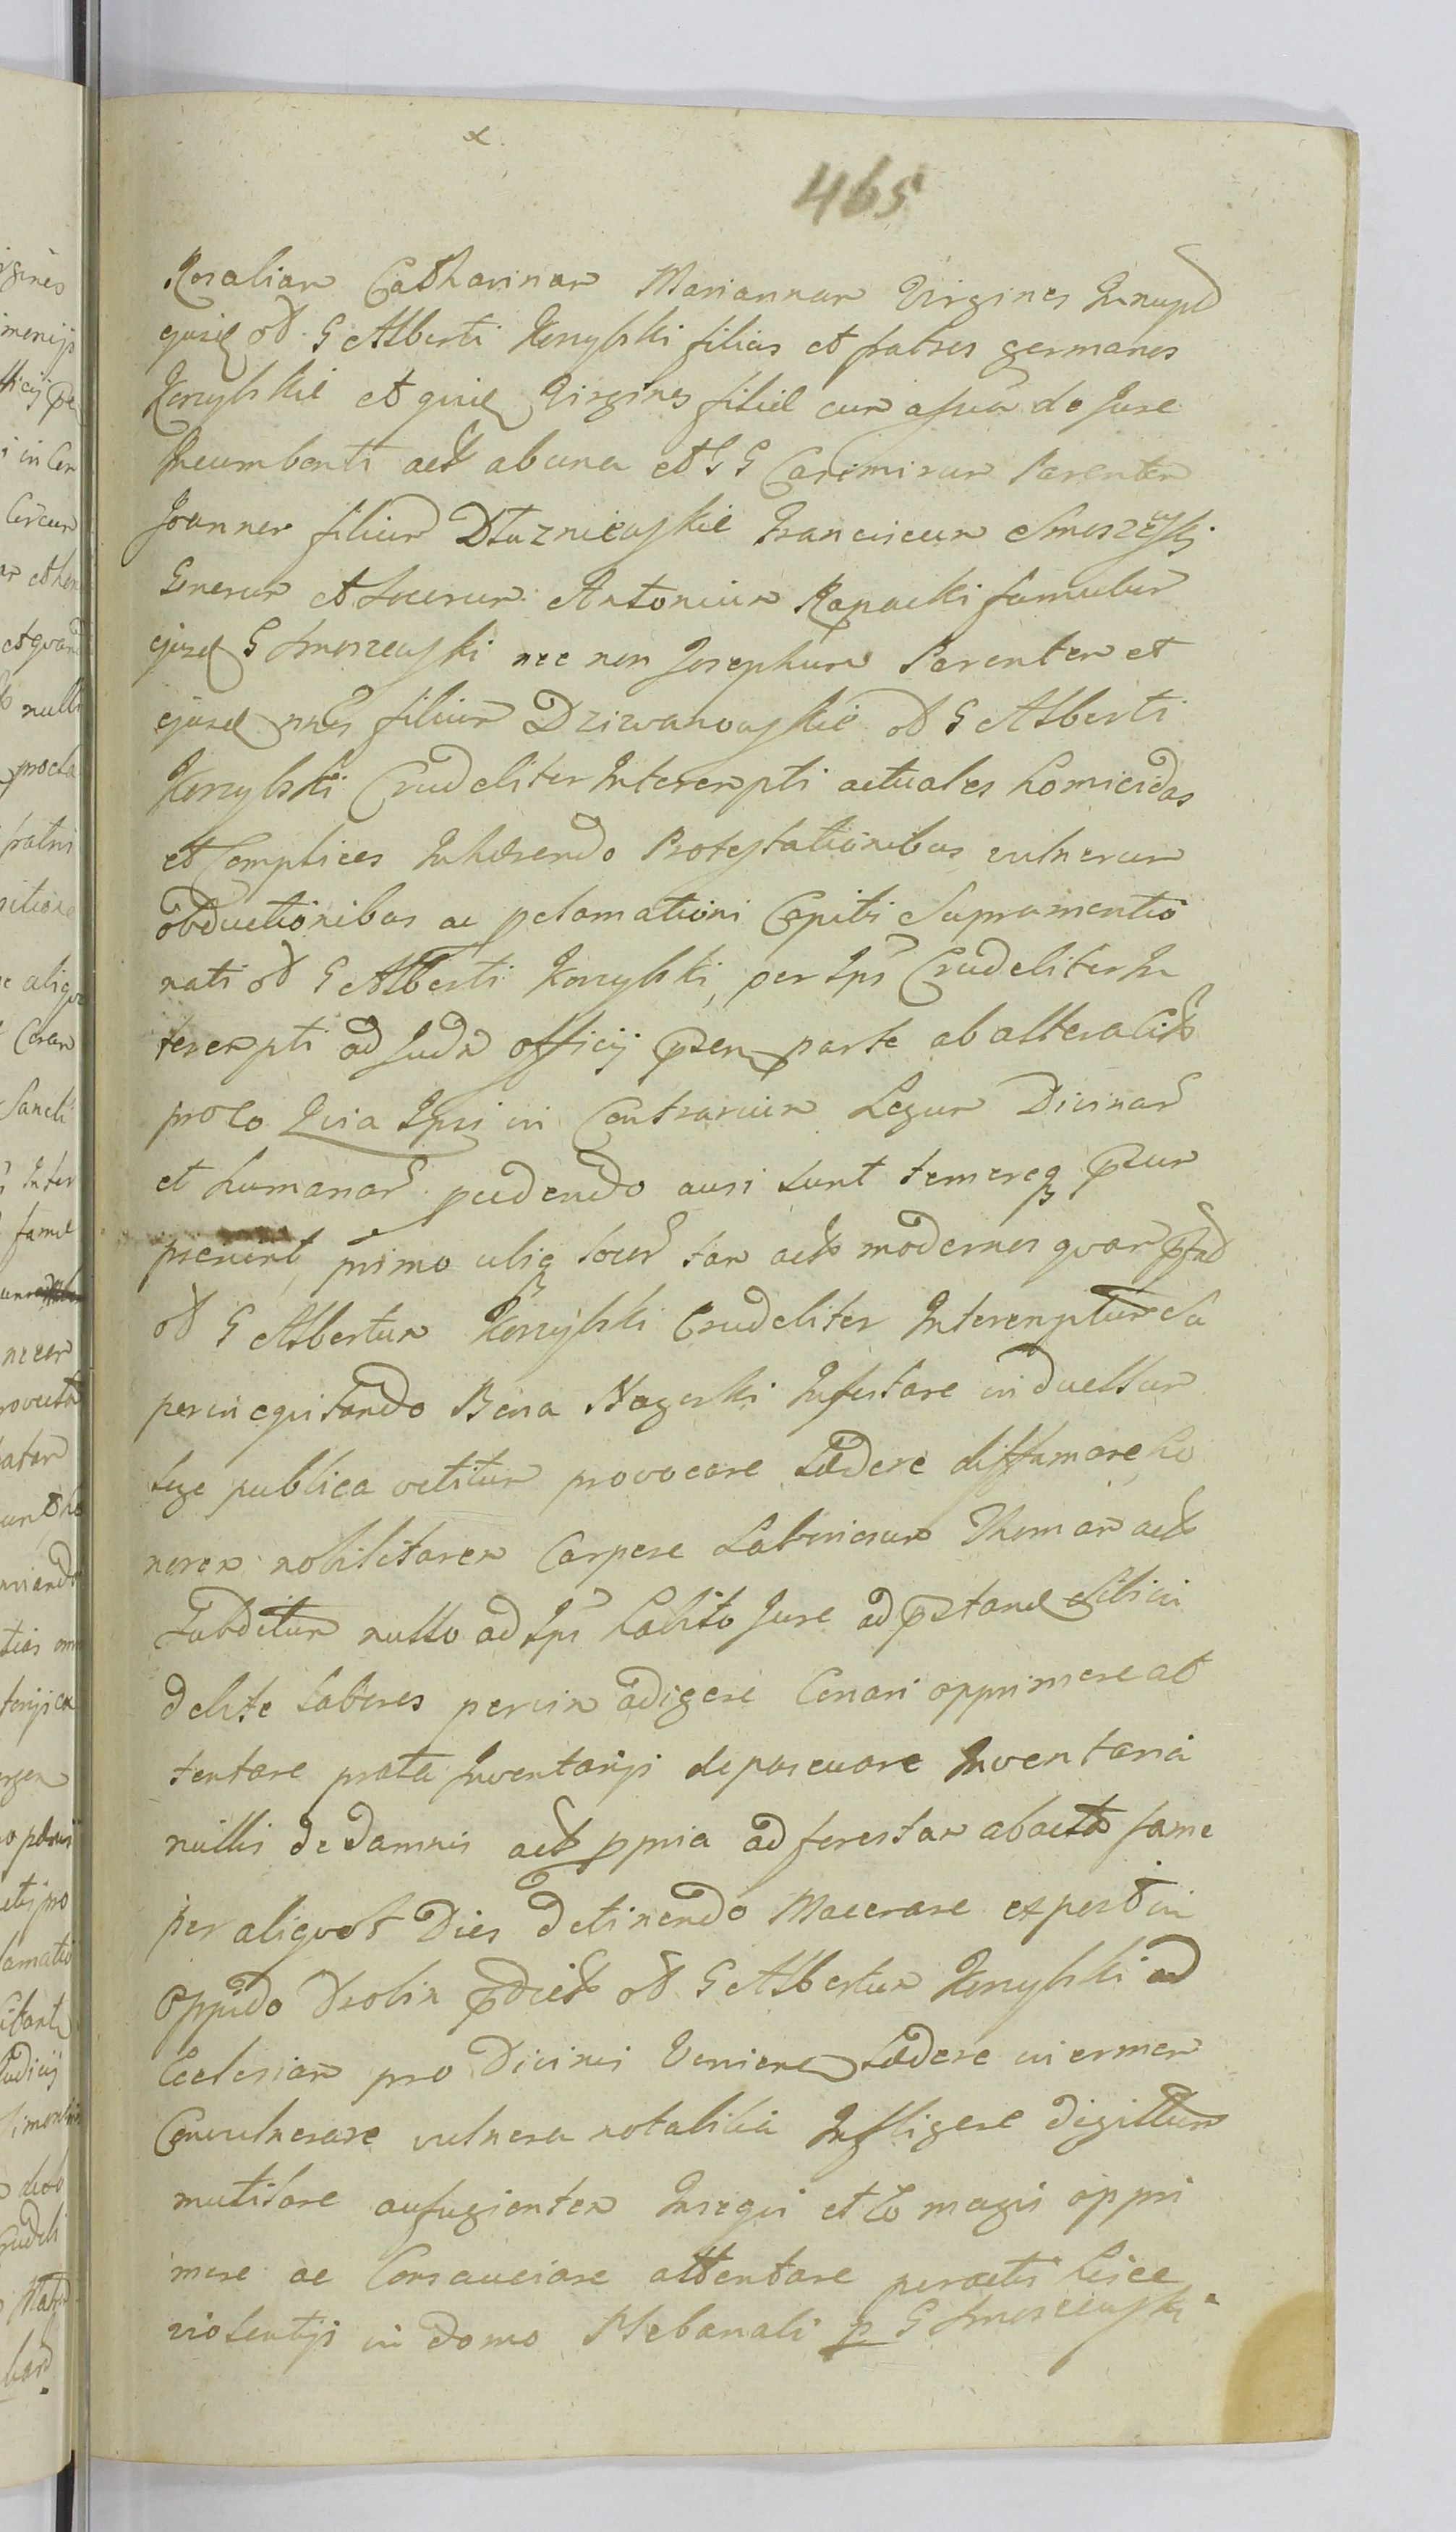 x
465
Rosaliam Catharinam Mariannam Virgines Innupt
ejusd od G Alberti Konylski filias et fratres germanos
Konylskie et quid Virgines filiae cum assia de Jure
Incumbenti act ab una et G G Casimirum Parentem
Joannem filium Dłużniewskie Franciscum Smoszewski
Generum et Socerum Antonium Rapacki famulum
ejusd G Smoszewski nec non Josephum Parentem et
ejusd nnis filium Dziwanowskie od G Alberti
Konylski Crudeliter Interempti actuales homicidas
et Complices Inhærendo Protestationibus vulnerum
obductionibus ac pclamationi Capiti Supramentio
nati od G Alberti Konylski, per Ips Crudeliter In
terempti ad Judm officij psen parte ab altera Citt
pro eo Quia Ipsi in Contrarium Legum Divinar
et humanar pcedendo ausi sunt temereq psum
pserunt, primo ubiq locor tam act modernos quam pfat
od G Albertum Konylski Crudeliter Interemptum Sæ
per inequitando Bona Nagorki Infestare in duellum
lege publica vetitum provocare Lædere diffamare ho
norem nobilitarem Carpere Laboriosum Thomam act
Subditum nullo ad Ips habito Jure ad pstand Sibi in
debite labores per vim adigere Conari opprimere at
tentare prata Inventarijs depascuare Inventaria
nullis de damnis act ppria ad forestam abacta fame
per aliquot Dies detinendo Macerare ex post in
Oppido Drobin pdict od G Albertum Konylski ad
Ecclesiam pro Divinis Venien Lædere inermem
Convulnerare vulnera notabilia Infligere digittum
mutilare aufugientem Insequi et eo magis oppri
mere ac Consauciare attentare peractis hisce
violentijs in domo Plebanali p G Smoszewski